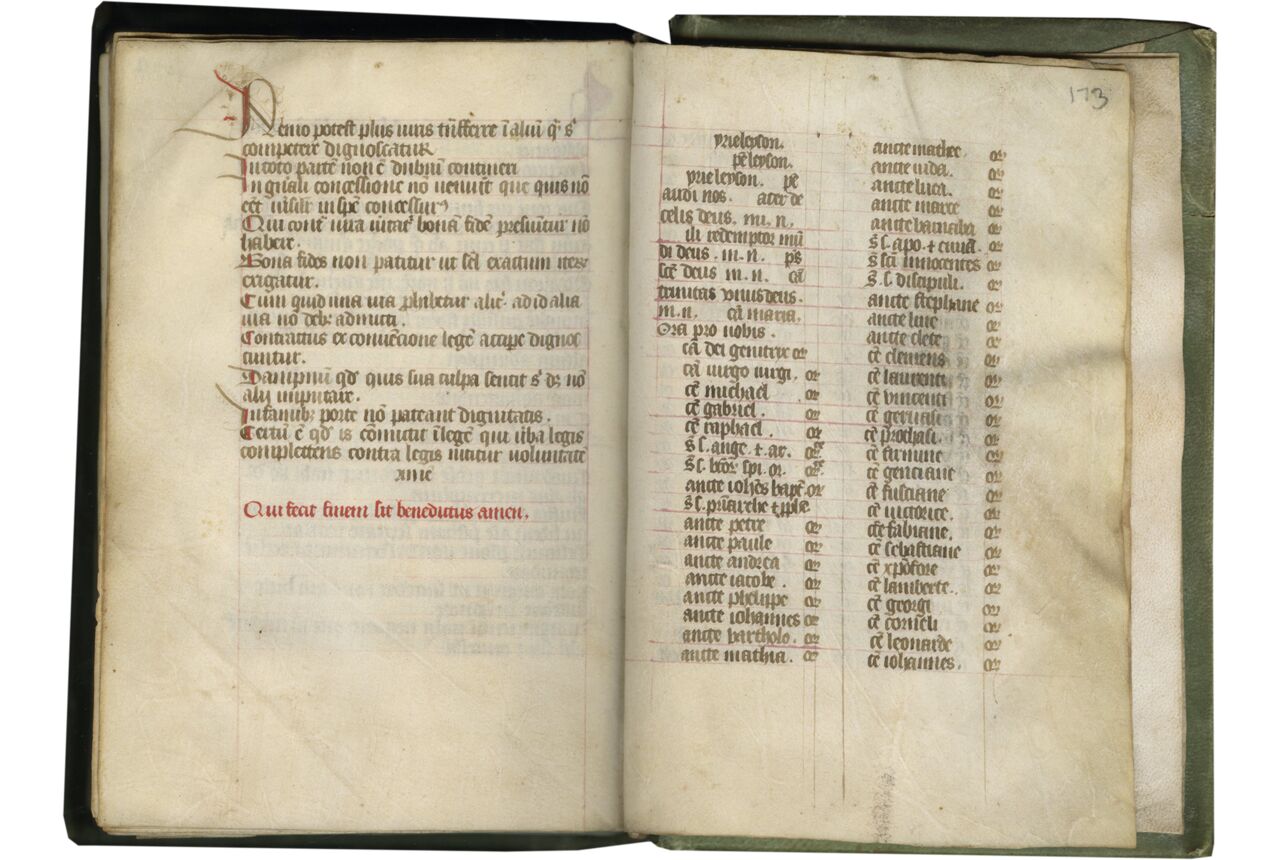 Nemo potest plus iuris trisferre ī aliū q̄ s'
competere dignoscatur
In toto partē non ē dubiū contineri
In gñali concessione nō veniūt que quis nō
eēt vīsilr in spē concessur9
Qui contª iura m̄catʳ bonā fidē presūitur nō
habere.
Bona fides non patitur ut sēl exactum iteꝝ
exigatur.
Cum quid una via ꝓhibetur alic̄. ad id alia
via nō debꝫ admitti.
Contractus ex convēcione legē accipe dignos
cuntur.
Dampnū qđ quis sua culpa sentit s' dꝫ nō
alii imputare.
Infamibꝫ porte nō pateant dignitatis.
Certū ē qđ is cōmictit ī legē qui ūba legis
complettens contra legis nititur voluntatē
Qui fecit finem sit benedictus amen.
173
yrieleyson.
p̄eleyson.
yrieleyson. p̄e
audi nos. ater de
celis deus. m̄. n.
ili redemptor mū
di deus. m. n. p̄s
scē deus m. n. cā
trinitas vnus deus.
m. n. cā maria.
Ora pro nobis.
cā dei genitrix or
cā virgo virgī. or
cē michael or
cē gabriel. or
cē raphael. or
s̄ s̄. ange. ⁊ ar. or
s̄ s̄. btōꝝ spi. or.
ancte iohēs bapt̄. or
s̄ s̄. pr̄iarche ⁊ ꝓphe
ancte petre or
ancte paule or
ancte andrea or
ancte iacobe. or
ancte phelippe or
ancte iohannes or
ancte bartholo. or
ancte mathia. or
ancte mathee. or
ancte iuda. or
ancte luca. or
ancte marce or
ancte barnaba or
s̄ s̄. apo. ⁊ evūā. or
s̄ sc̄i innocentes or
s̄. s̄. discipuli. or
ancte stephane or
ancte line or
ancte clete or
cē clemens or
cē laurenti or
cē vincenti or
cē geruasi or
cē prothasi. or
cē firmine or
cē genciane or
cē fusciane or
cē victorice. or
cē fabiane. or
cē sebastiane or
cē xp̄ofore or
cē lamberte. or
cē georgi or
cē corneli or
cē leonarde or
cē iohannes. or